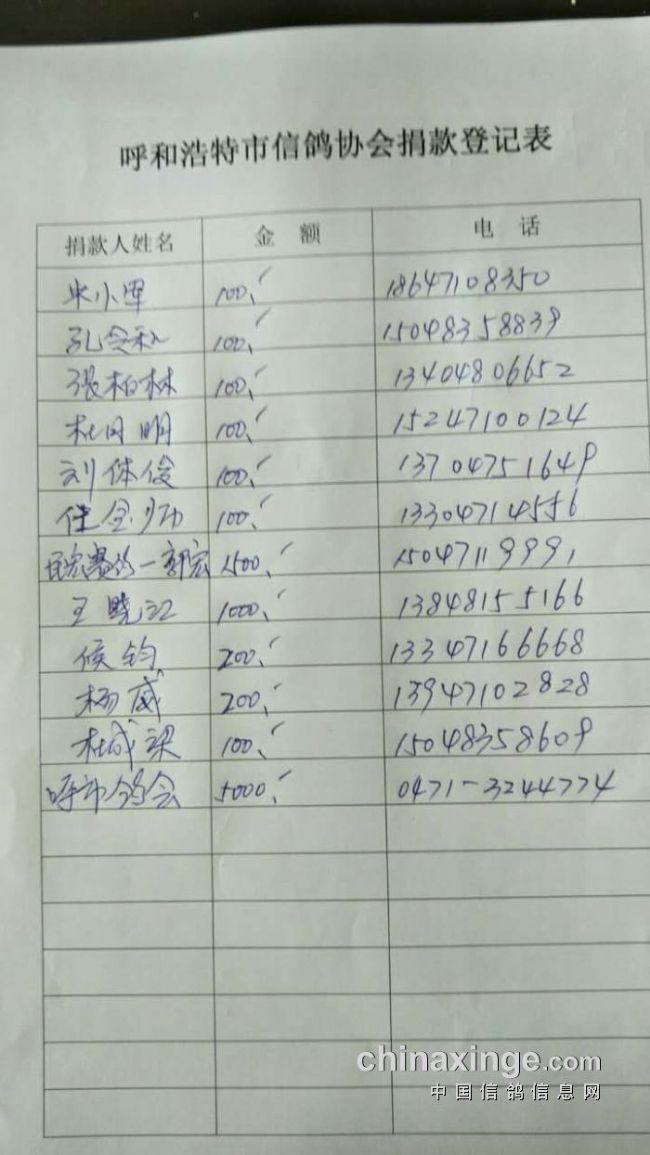 呼和浩特市信鸽协会捐款登记表
捐款人姓名 金 额 电 话
史小军 100 18647108350
孔令和 100 15048358839
张柏林 100 13404806652
杜月明 100 15247100124
刘体俊 100 13704751649
任全 100 13304714556
一郭宏 1500 15047119991
王晓江 1000 13848155166
侯钧 200 13347166668
杨威 200 13947102828
杜成梁 100 15048358609
呼市鸽会 5000 0471-3244774
chinaxinge.com
中国信鸽信息网